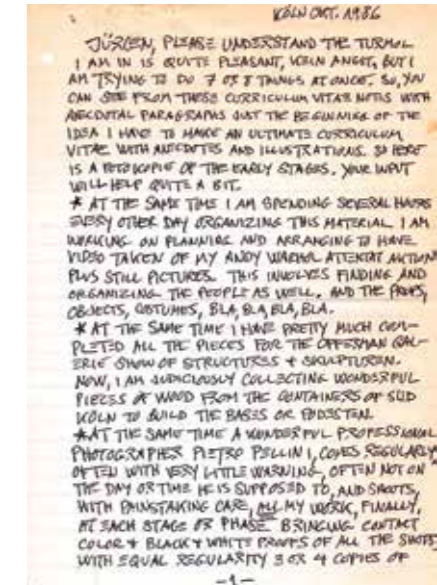 KÖLN OKT. 1986
JÜRGEN, PLEASE UNDERSTAND THE TURMOL
I AM IN IS QUITE PLEASANT, KEIN ANGST, BUT I
AM TRYING TO DO 7 OR 8 THINGS AT ONCE. SO, YOU
CAN SEE FROM THESE CURRICULUM VITAE NOTES WITH
ANECDOTAL PARAGRAPHS JUST THE BEGINNING OF THE
IDEA I HAVE TO MAKE AN ULTIMATE CURRICULUM
VITAE WITH ANECDOTES AND ILLUSTRATIONS. SO HERE
IS A FOTOKOPIE OF THE EARLY STAGES. YOUR INPUT
WILL HELP QUITE A BIT.
* AT THE SAME TIME I AM SPENDING SEVERAL HOURS
EVERY OTHER DAY ORGANIZING THIS MATERIAL I AM
WORKING ON PLANNING AND ARRANGING TO HAVE
VIDEO TAKEN OF MY ANDY WARHOL ATTENTAT AKTION
PLUS STILL PICTURES. THIS INVOLVES FINDING AND
ORGANIZING THE PEOPLE AS WELL. AND THE PROPS,
OBJECTS, COSTUMES, BLA, BLA, BLA, BLA.
* AT THE SAME TIME I HAVE PRETTY MUCH COM-
PLETED ALL THE PIECES FOR THE OFFERMAN GAL-
ERIE SHOW OF STRUCTURES + SKULPTUREN.
NOW, I AM JUDICIOUSLY COLLECTING WONDERFUL
PIECES OF WOOD FROM THE CONTAINERS OF SUD
KÖLN TO BUILD THE BASES OR PODESTEN.
* AT THE SAME TIME A WONDERFUL PROFESSIONAL
PHOTOGRAPHER PIETRO PELLINI, COMES REGULARLY
OFTEN WITH VERY LITTLE WARNING, OFTEN NOT ON
THE DAY OR TIME HE IS SUPPOSED TO, AND SHOOTS,
WITH PAINSTAKING CARE, ALL MY WORK, FINALLY,
AT EACH STAGE OR PHASE BRINGING CONTACT
COLOR + BLACK + WHITE PROOFS OF ALL THE SHOTS
WITH EQUAL REGULARITY 3 OR 4 COPIES OF
-1-